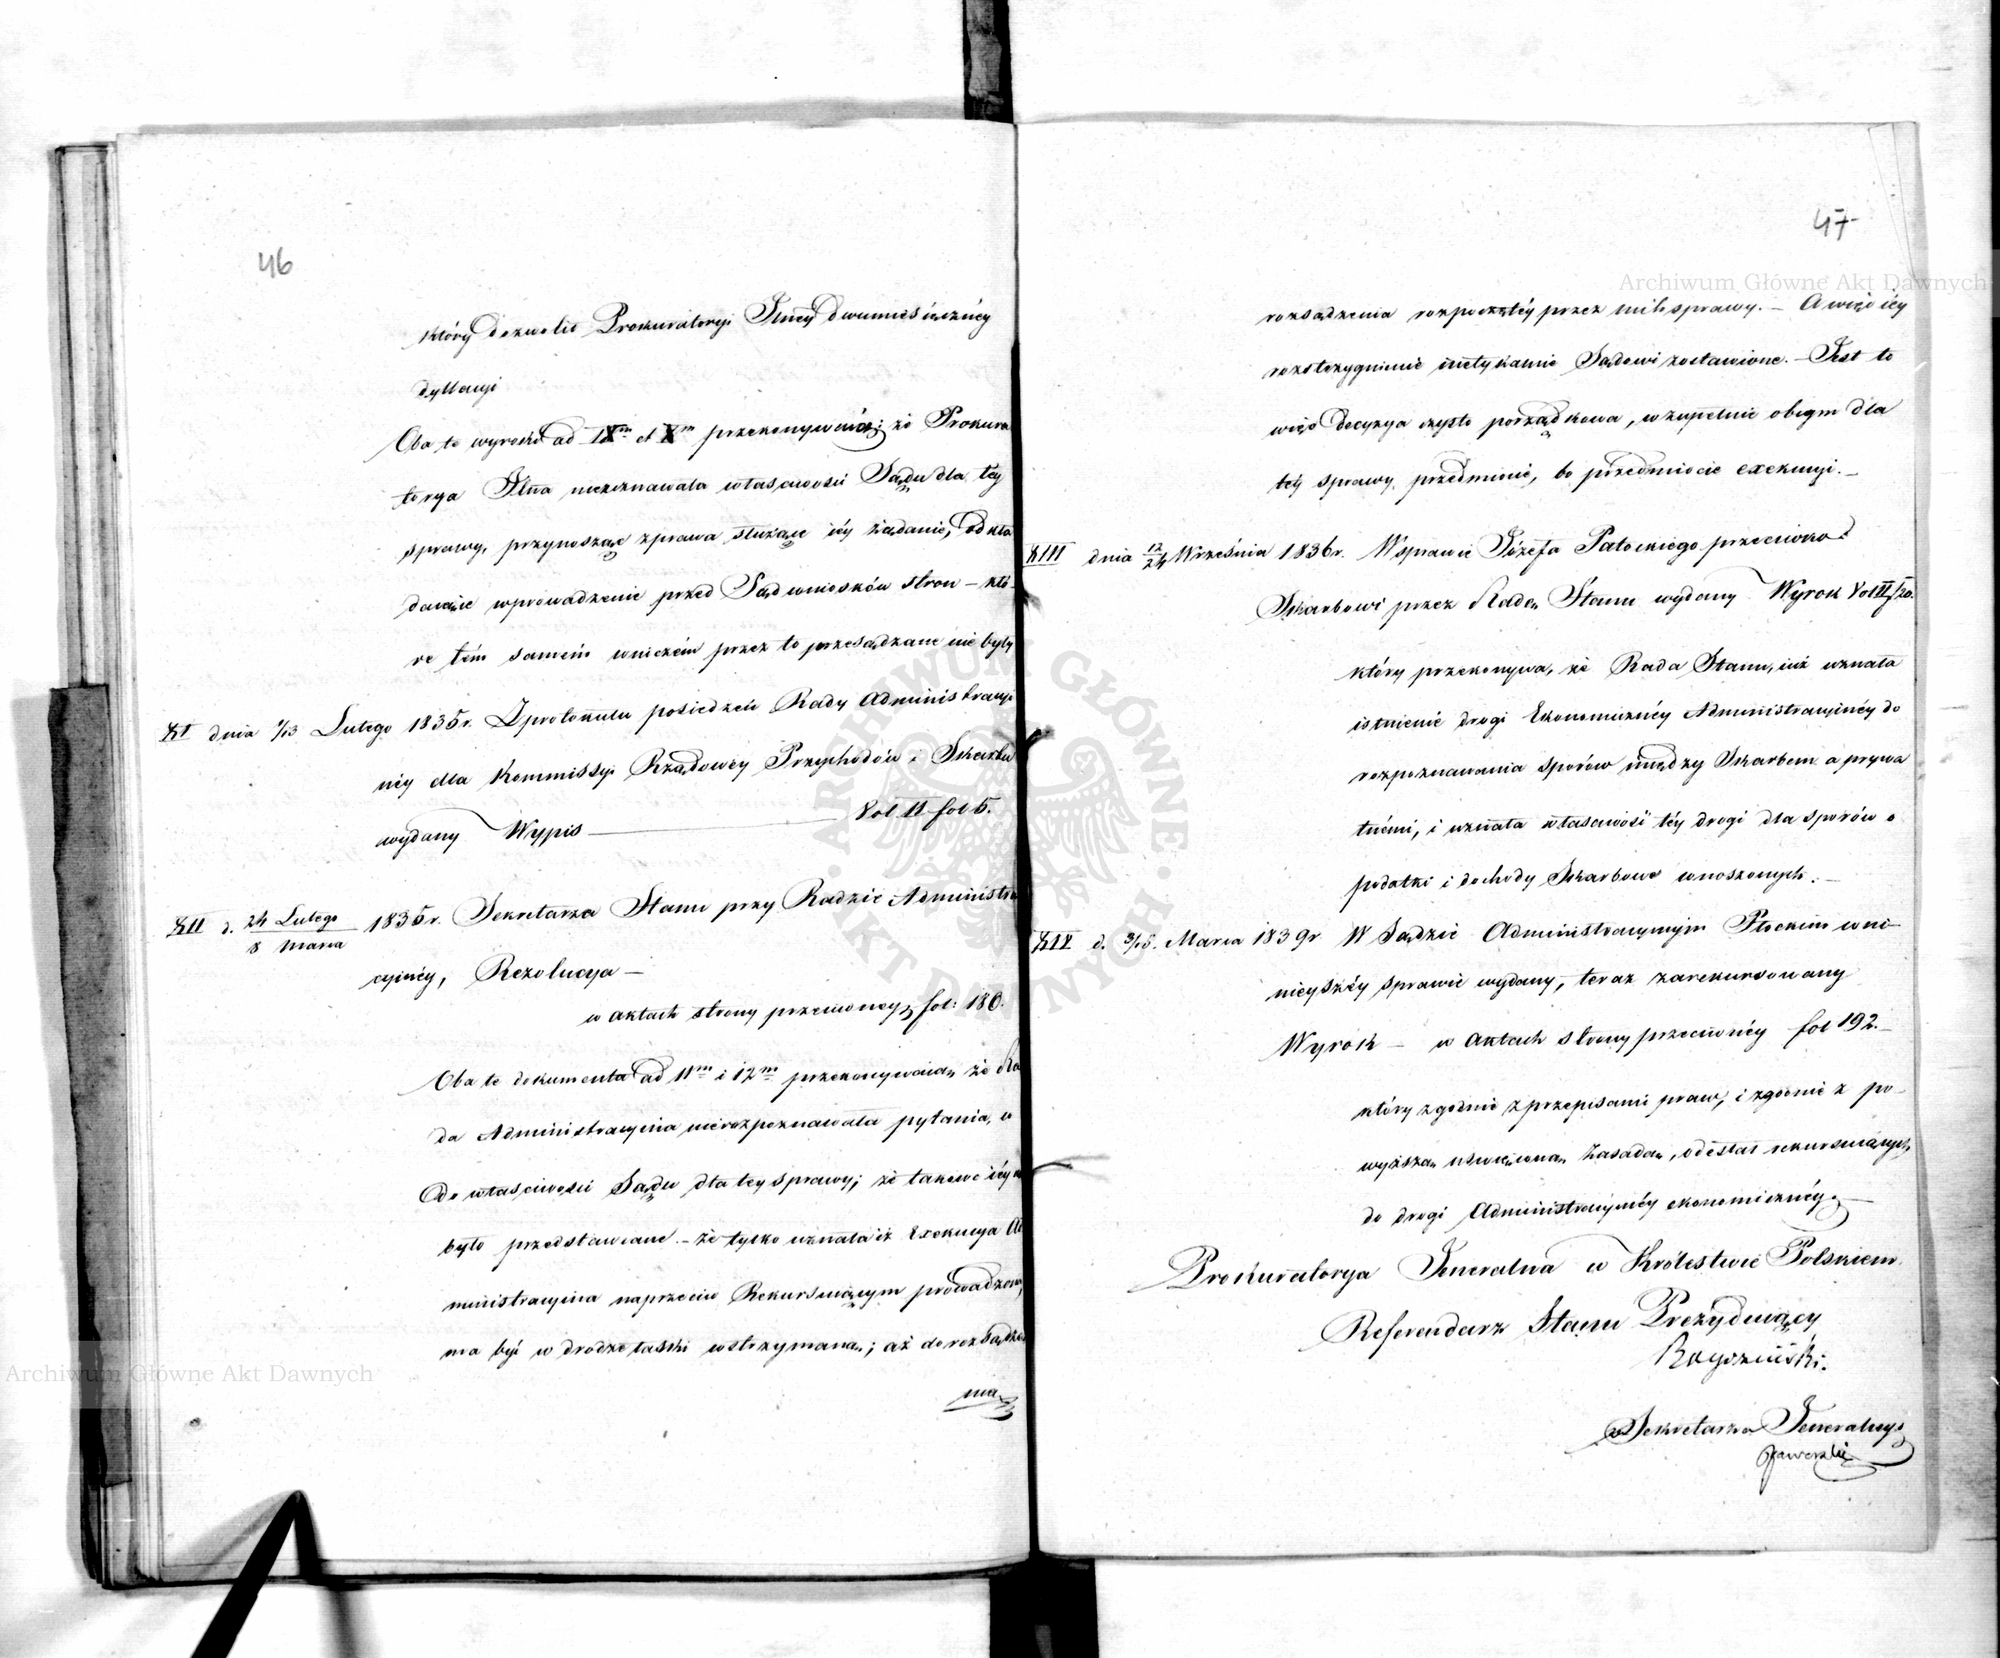 46
który dozwolił Prokuratoryi Jlnéy dwumiesięcznéy
dyllacyi
Oba te wyroki ad IX<sup>m</sup> et X<sup>m</sup> przekonywaią; że Prokura
torya Jlna nieuznawała właściwości Sądu dla téy
sprawy, przynosząc z prawa służące iéy żądanie, odkła
daiące wprowadzenie przed Sąd wniosków stron – któ-
re tém samém w niczém przez to przesądzane nie były
XI dnia 1/13 Lutego 1835r. Z protokułu posiedzeń Rady Administracyi
néy dla Kommissyi Rządowéy Przychodów i Skarbu
wydany Wypis — Vol II fol 5.
XII d. 24 Lutego / 8 Marca 1835r. Sekretarza Stanu przy Radzie Administra
cyinéy, Rezolucya —
w aktach strony przeciwnéy fol: 180.
Oba te dokumenta ad 11<sup>m</sup> i 12<sup>m</sup> przekonywaią, że Ra
da Administracyina nierozpoznawała pytania, o
właściwości Sądu dla téy sprawy; że takowe iéy nie
było przedstawiane. – że tylko uznała iż Exekucya Ad
ministracyina naprzeciw Rekursuiącym prowadzona,
ma być w drodze łaski wstrzymaną; aż do rozsądze
nia
47
rozsądzenia rozpoczętéy przez nich sprawy. – A więc iéy
rozstrzygnienie nietykalnie Sądowi zostawione. – Jest to
więc decyzya czysto porządkowa, w zupełnie obcym dla
téy sprawy przedmiocie, bo przedmiocie exekucyi. –
XIII dnia 12/24 Września 1836r. W sprawie Józefa Patockiego przeciwko
Skarbowi przez Radę Stanu wydany Wyrok Vol II f 20.
który przekonywa, że Rada Stanu, iuż uznała
istnienie drogi Ekonomicznéy Administracyinéy do
rozpoznawania sporów między Skarbem a prywa
tnémi, i uznała właściwość téy drogi dla sporów o
podatki i dochody Skarbowe wnoszonych. –
XIV d. 3/15. Marca 1839r W Sądzie Administracyinym Płockim w ni-
nieyszéy sprawie wydany, teraz zarekursowany
Wyrok – w aktach strony przeciwnéy fol 192. –
który zgodnie z przepisami praw, i zgodnie z po-
wyższą uświęconą zasadą, odesłał rekursuiących,
do drogi Administracyinéy ekonomicznéy. –
Prokuratorya Jeneralna w Królestwie Polskiem
Referendarz Stanu Prezyduiący
Sekretarz Jeneralny
Archiwum Główne Akt Dawnych
Archiwum Główne Akt Dawnych
ARCHIWUM GŁÓWNE AKT DAWNYCH